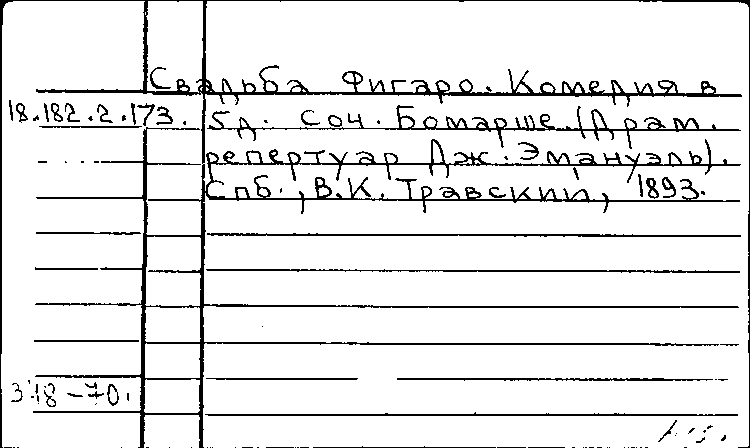 Свадьба Фигаро. Комедия в
18.182.2.173. 5д. Соч. Бомарше. (Драм.
репертуар Дж. Эмануэль).
Спб., В.К. Травский, 1893.
318-70.